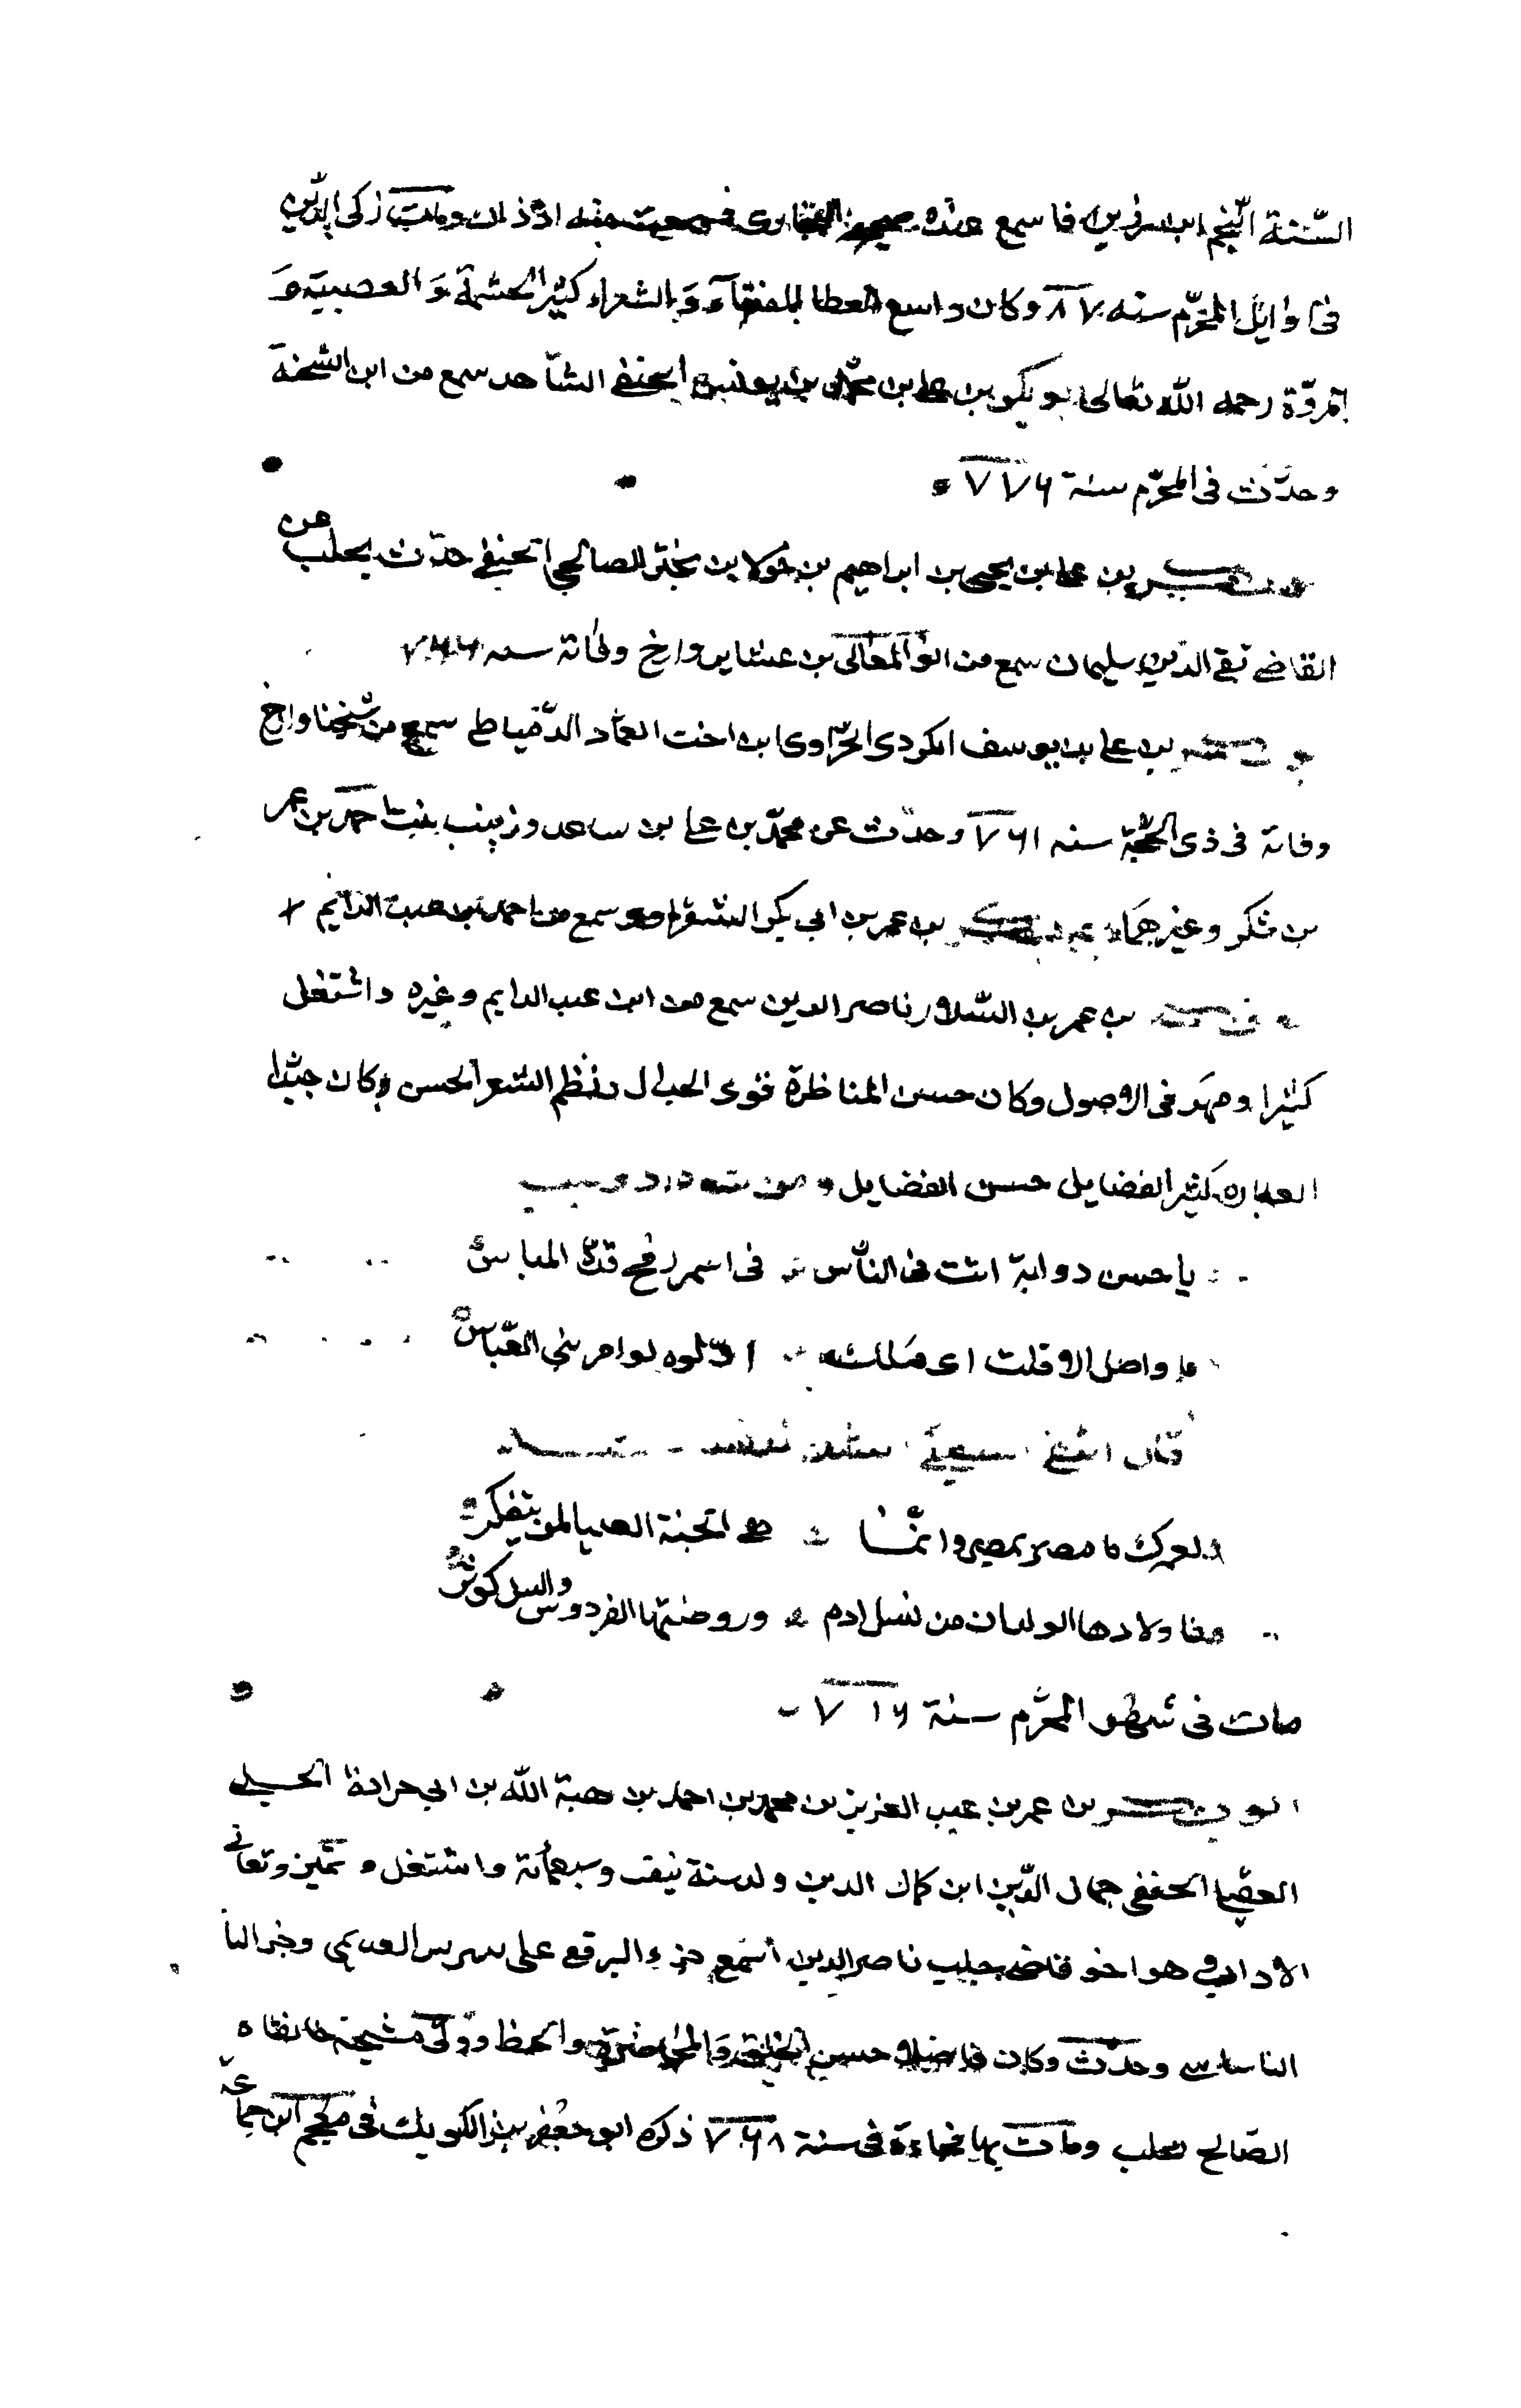 السّنة النّجم ابن رزين فاسمع عنده صحيح البخارى فسمعت منه اذ ذاك ومات زكى الدّين
فى اوايل المحرّم سنه ٧ ٨ وكان واسع العطا للفقرآء و الشعراء كثير الحشمة و العصبية و
المروّة رحمه الله تعالى ابو بكر بن على بن محمّد بن الحنفى الشاهد سمع من ابن الشحنة
وحدّث فى المحرّم سنة ٧٧٦
بن على بن يحيى بن ابراهيم بن بن الصالحى الحنفى حدّث بحلب عن
القاضى تقى الدّين سليمان سمع من ابو المعالى بن عشاير وارخ وفاته سنه
بن على بن يوسف الكردى الحرّاوى ابن اخت العماد الدّمياطى سمع من شيخنا وارخ
وفاته فى ذى الحجّة سنه ٧٦١ وحدّث عن محمّد بن على بن ساعد وزينب بنت احمد بن عمر
بن شكر وغيرهما بن عمر بن ابى بكر الشقراوى سمع من احمد بن عبد الدايم
بن عمر بن السلار ناصر الدين سمع من ابن عبد الدايم وغيره واشتغل
كثيرا ومهر فى الاصول وكان حسن المناظرة قوى الجدال ونظم الشعر الحسن وكان جيّدا
العبارة كثير الفضايل حسن الفضايل ومن
يا حسن دوابة اتت فى النّاس فى اسمر رمح قدّه الميّاس
ما واصل الا قلت اى مسالته ا ولوه لوامر بنى العبّاس
قال
لعمرك ما مصر بمصر وانّما هى الجنة العليا لمن يتفكر
فاولادها الولدان من نسل ادم وروضتها الفردوس والنيل كوثر
مات فى شهر المحرّم سنة ٧١٦
ابو بكر بن عمر بن عبد العزيز بن محمد بن احمد بن هبة الله بن ابى جرادة الحلبى
العقيلى الحنفى جمال الدّين ابن كمال الدين ولد سنة نيف وسبعمأئة واشتغل و تميّز وتعانى
الاداب وهو اخو قاضى حلب ناصر الدين اسمع جزء البرقع على بيبرس العديمى وجزء البا
النياسى وحدّث وكان فاضلا حسن الخلق والمحاضرة والخط وولّى مشيخة خانقاه
الصّالح بحلب ومات بها فجاءة فى سنة ٧٦٨ ذكره ابو جعفر بن الكويك فى معجم ابن جماعة